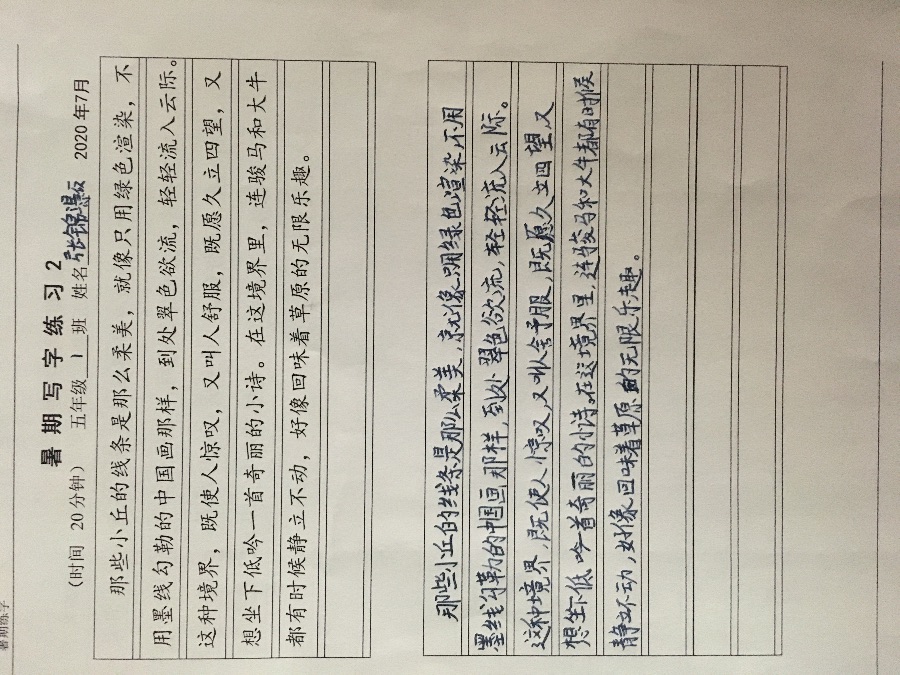 暑期练字
暑期写字练习2
（时间 20分钟） 五年级 1 班 姓名 张锦 2020年7月
那些小丘的线条是那么柔美，就像只用绿色渲染，不
用墨线勾勒的中国画那样，到处翠色欲流，轻轻流入云际。
这种境界，既使人惊叹，又叫人舒服，既愿久立四望，又
想坐下低吟一首奇丽的小诗。在这境界里，连骏马和大牛
都有时候静立不动，好像回味着草原的无限乐趣。
那些小丘的线条是那么柔美，就像只用绿色渲染，不用
墨线勾勒的中国画那样，到处翠色欲流，轻轻流入云际。
这种境界，既使人惊叹，又叫人舒服，既愿久立四望，又
想坐下低吟一首奇丽的小诗。在这境界里，连骏马和大牛都有时候
静立不动，好像回味着草原的无限乐趣。